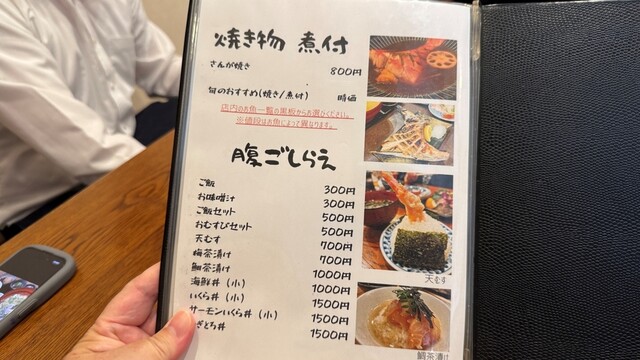 焼き物 煮付
さんが焼き 800円
旬のおすすめ(焼き/煮付) 時価
店内のお魚一覧の黒板からお選びください。
※値段はお魚によって異なります。
腹ごしらえ
ご飯 300円
お味噌汁 300円
ご飯セット 500円
おむすびセット 500円
天むす 700円
梅茶漬け 700円
鯛茶漬け 1000円
海鮮丼（小） 1000円
いくら丼（小） 1500円
サーモンいくら丼（小） 1500円
ぎとろ丼 1500円
天むす
鯛茶漬け